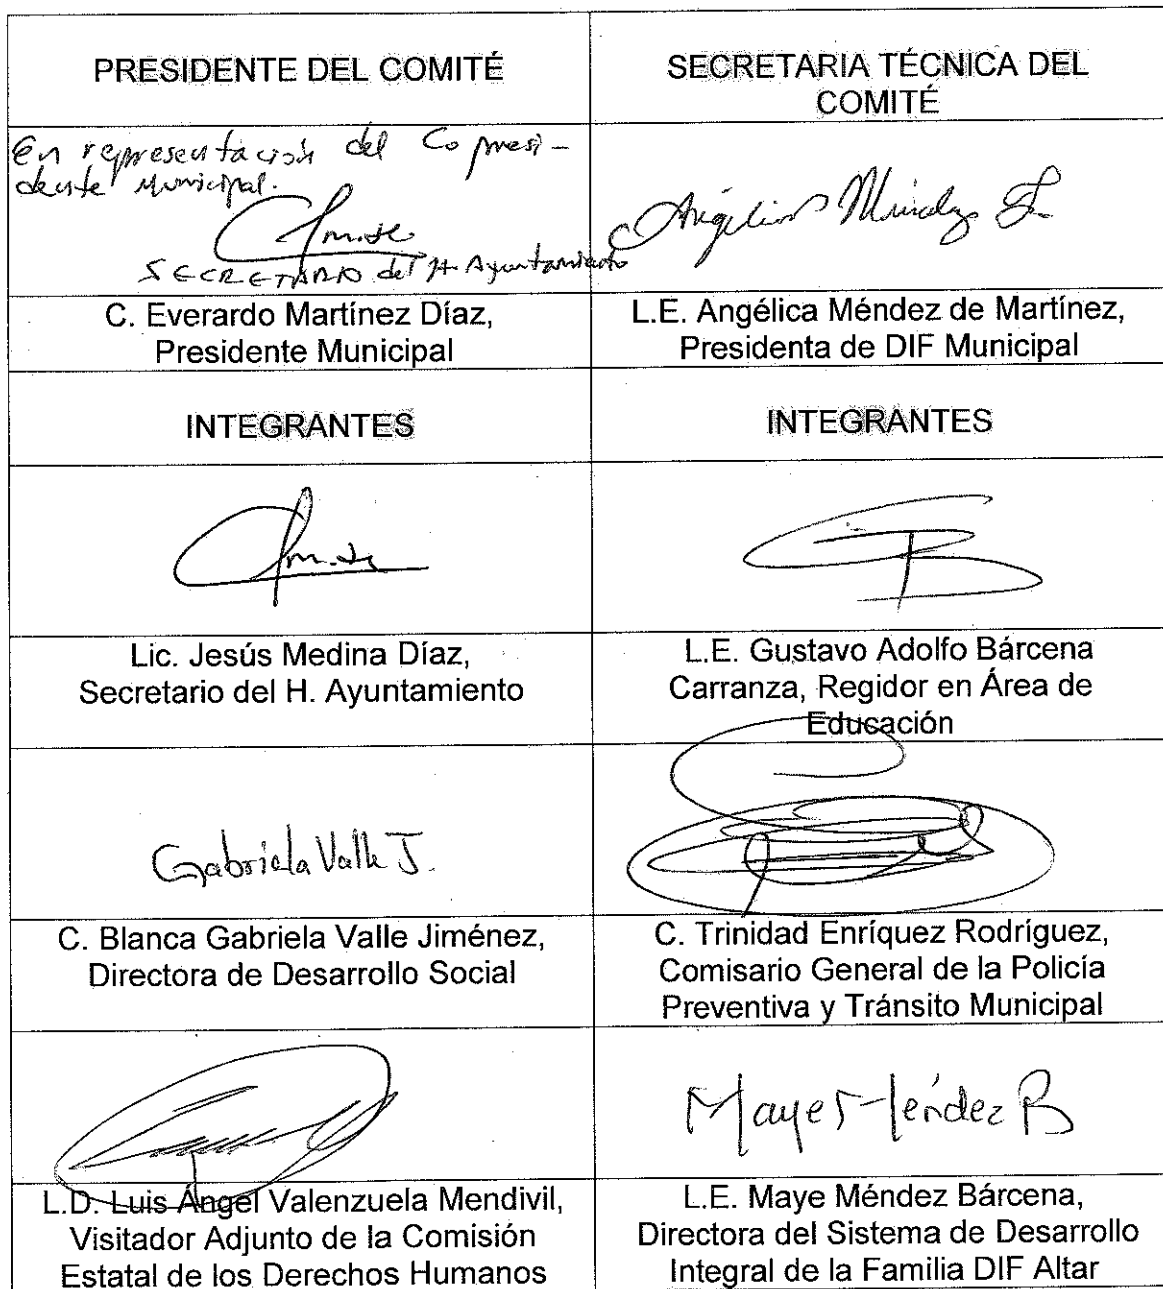 PRESIDENTE DEL COMITÉ
SECRETARIA TÉCNICA DEL
COMITÉ
En representación del C. presi-
dente Municipal.
SECRETARIO del H. Ayuntamiento
Angélica Méndez
C. Everardo Martínez Díaz,
Presidente Municipal
L.E. Angélica Méndez de Martínez,
Presidenta de DIF Municipal
INTEGRANTES
INTEGRANTES
Lic. Jesús Medina Díaz,
Secretario del H. Ayuntamiento
L.E. Gustavo Adolfo Bárcena
Carranza, Regidor en Área de
Educación
Gabriela Valle J.
C. Blanca Gabriela Valle Jiménez,
Directora de Desarrollo Social
C. Trinidad Enríquez Rodríguez,
Comisario General de la Policía
Preventiva y Tránsito Municipal
Maye Méndez B
L.D. Luis Ángel Valenzuela Mendivil,
Visitador Adjunto de la Comisión
Estatal de los Derechos Humanos
L.E. Maye Méndez Bárcena,
Directora del Sistema de Desarrollo
Integral de la Familia DIF Altar